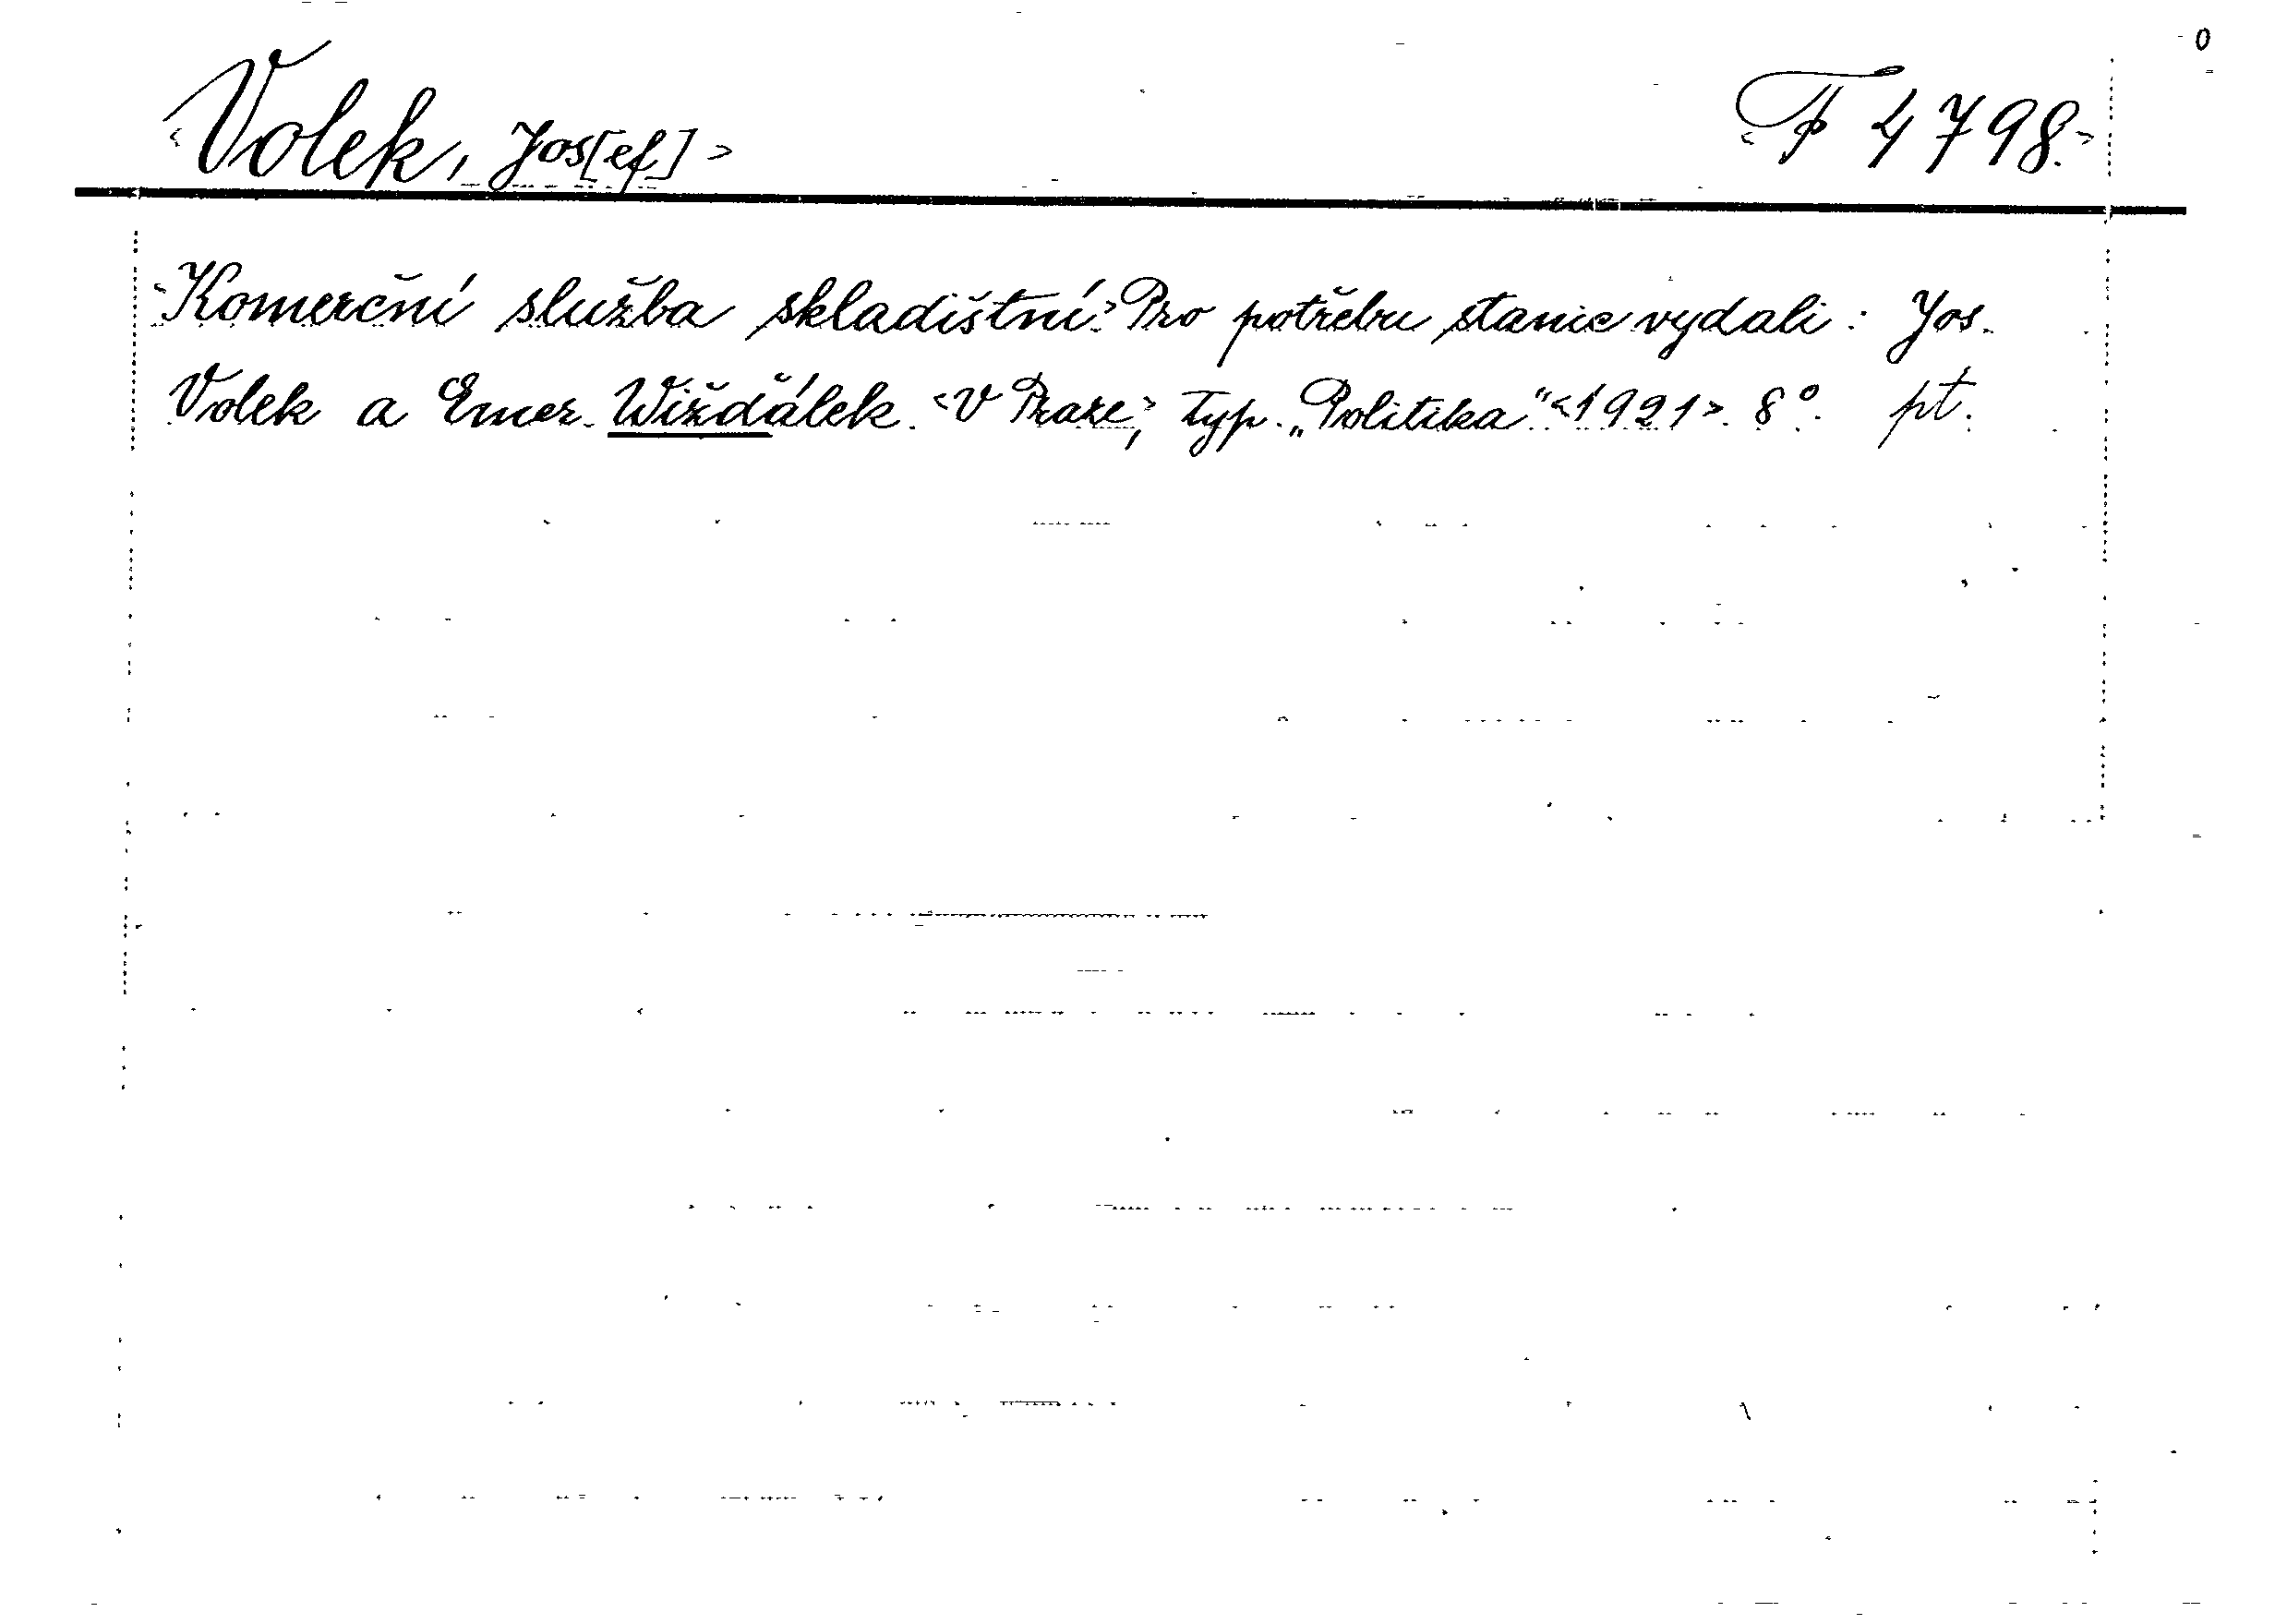 <Volek, Jos[ef]> <F 4798.>
<Komerční služba skladištní.> Pro potřebu stanic vydali: Jos.
Volek a Emer. Wiždálek. <V Praze,> typ. „Politika" <1921>. 8°. pt.